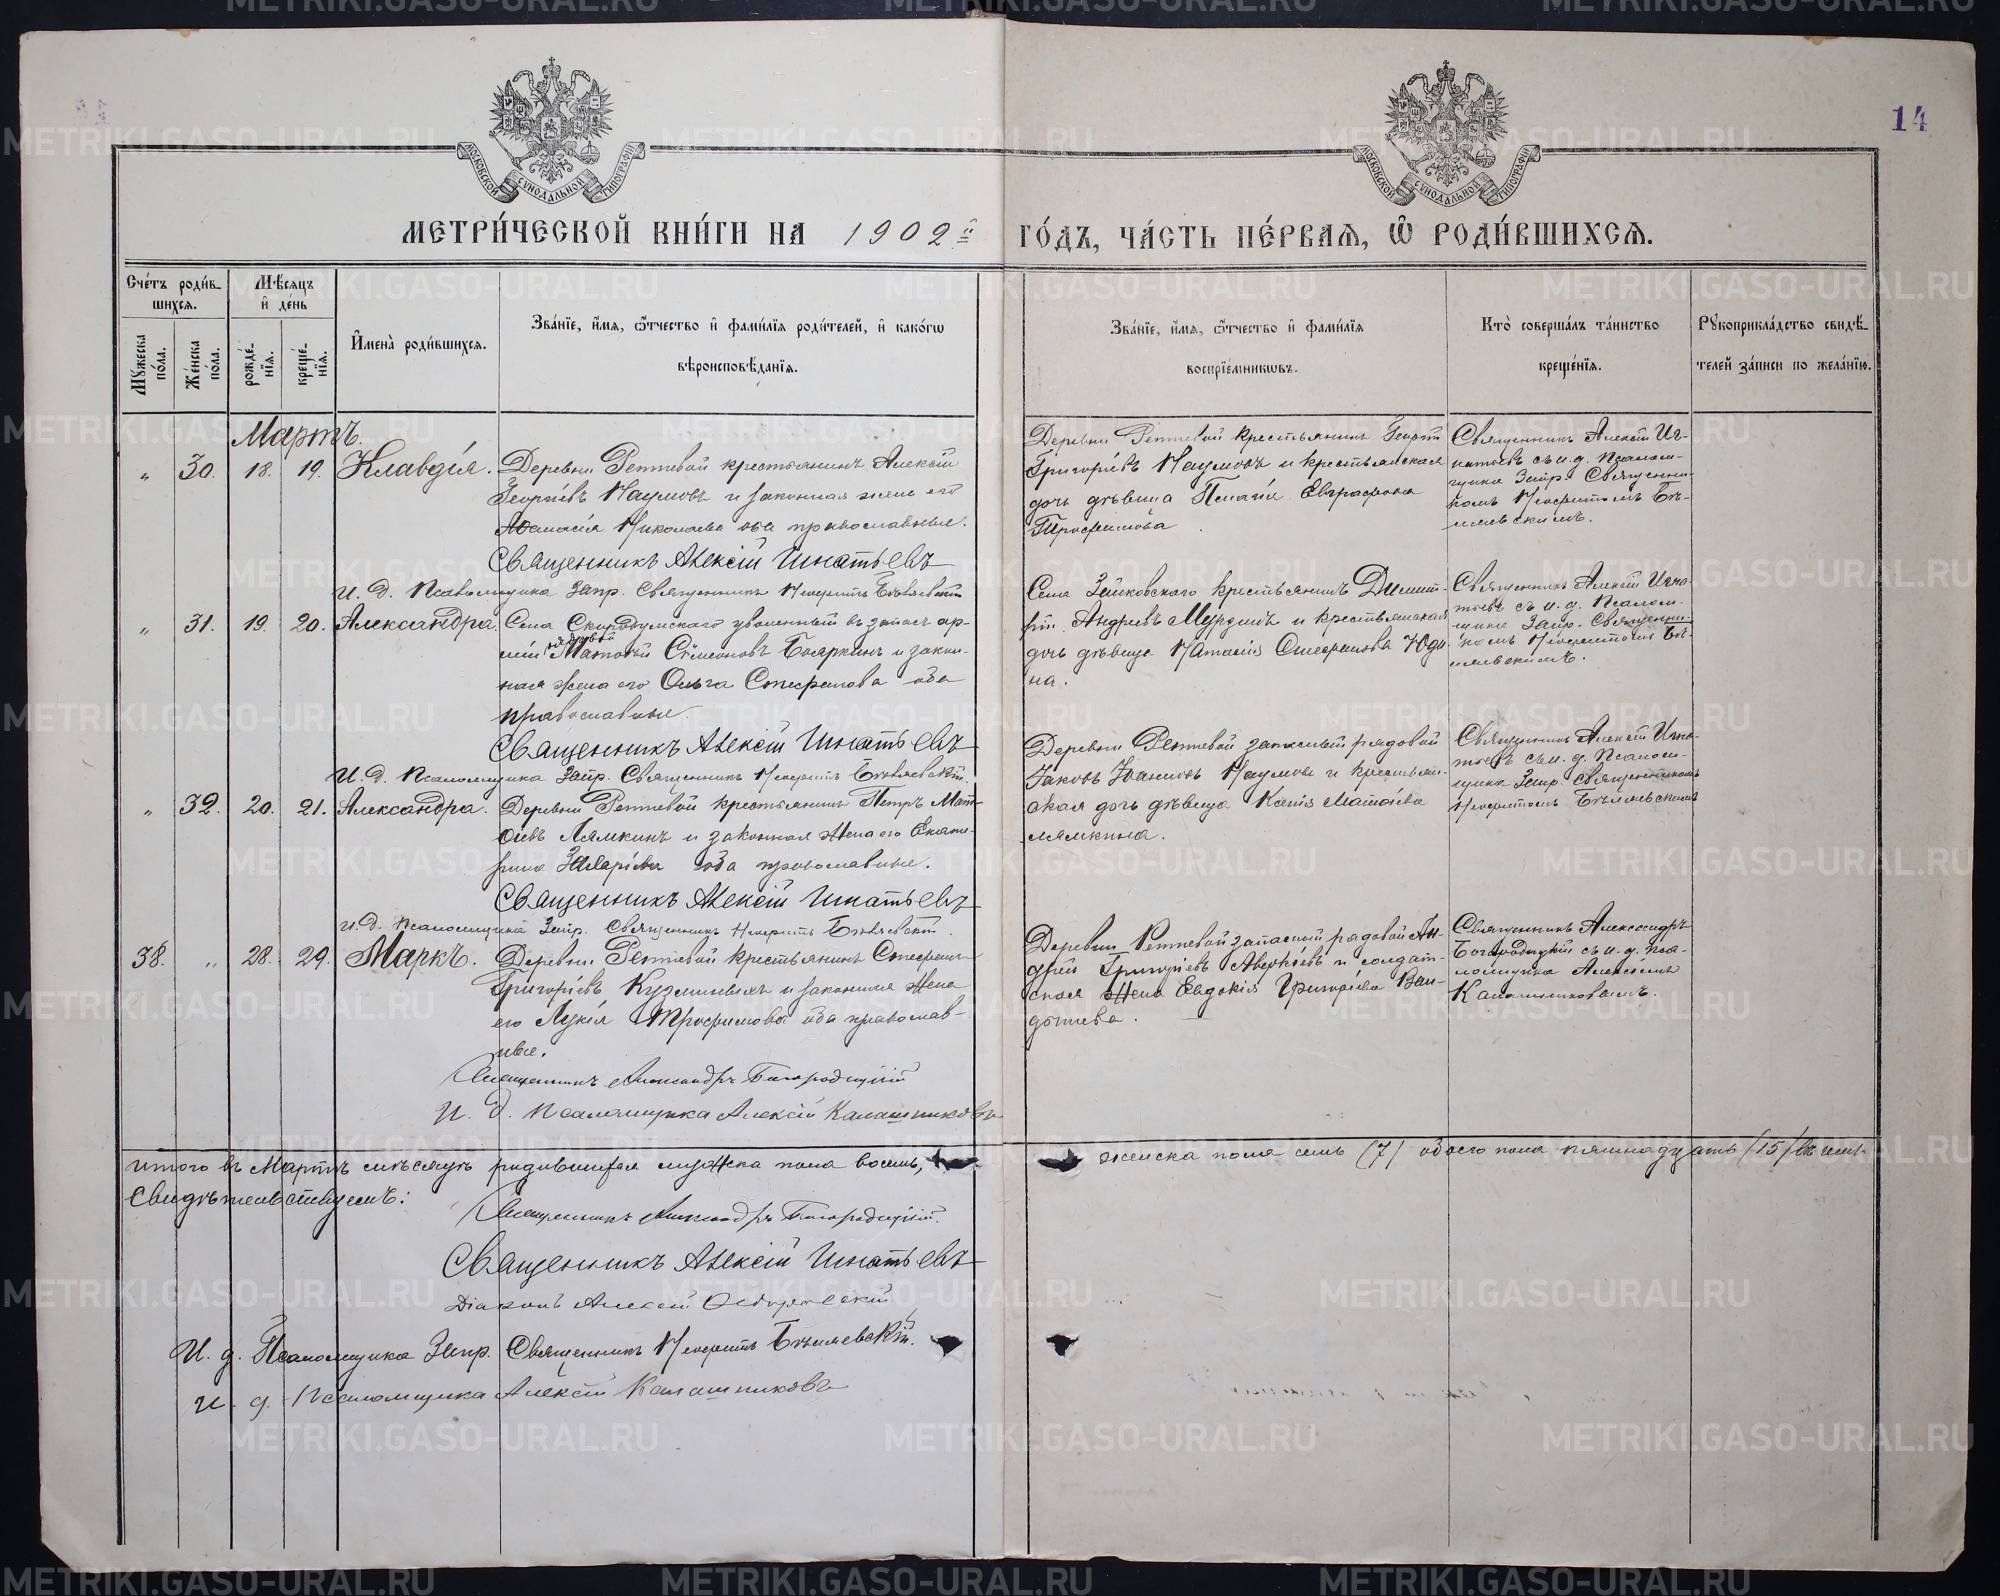 14
МОСКОВСКОЙ СѴНОДАЛЬНОЙ ТИПОГРАФІИ
МОСКОВСКОЙ СѴНОДАЛЬНОЙ ТИПОГРАФІИ
МЕТРИ́ЧЕСКОЙ КНИ́ГИ НА 1902й ГО́ДЪ, ЧА́СТЬ ПЕ́РВАѦ, Ѽ РОДИ́ВШИХСѦ.
Сче́тъ роди́в-
шихсѧ.
Мꙋ́жеска по́ла.
Же́нска по́ла.
Мѣ́сѧцъ и҆ де́нь
рожде́-нїѧ.
креще́-нїѧ.
И҆мена̀ роди́вшихсѧ.
Зва́нїе, и҆́мѧ, ѻ҆́тчество и҆ фами́лїѧ роди́телей, и҆ како́гѡ
вѣроисповѣ́данїѧ.
Зва́нїе, и҆́мѧ, ѻ҆́тчество и҆ фами́лїѧ
воспрїе́мникѡвъ.
Кто̀ соверша́лъ та́инство
креще́нїѧ.
Рꙋкоприкла́дство свидѣ́-
телей за́писи по жела́нїю.
Мартъ.
„ 30. 18. 19. Клавдія. Деревни Реттевой крестьянинъ Алексій
Георгіевъ Наумовъ и законная жена его
Николаева оба православные.
Священникъ Алексій Игнатьевъ
И. д. Псаломщика Запр. Священникъ Неофитъ Бѣляевскій
Деревни Реттевой крестьянинъ Георгій
Григоріевъ Наумовъ и крестьянская
дочь дѣвица Пелагія Евграфова
Трофимова
Священникъ Алексій Иг-
натьевъ съ и. д. Псалом-
щика Запр. Священни-
комъ Неофитомъ Бѣ-
ляевскимъ.
„ 31. 19. 20. Александра. Села Скородумскаго уволенный въ запасъ ар-
міи рядовой Матвей Сѷмеоновъ Бояркинъ и закон-
ная жена его Ольга Стефанова оба
православные.
Священникъ Алексій Игнатьевъ
И. д. Псаломщика Запр. Священникъ Неофитъ Бѣляевскій.
Села Зайковскаго крестьянинъ Димит-
рій Андреевъ Мурзинъ и крестьянская
дочь дѣвица Наталія Стефанова Юди-
на.
Священникъ Алексій Игна-
тьевъ съ и. д. Псалом-
щика Запр. Священни-
комъ Неофитомъ Бѣ-
ляевскимъ.
„ 32. 20. 21. Александра. Деревни Реттевой крестьянинъ Петръ Мат-
ѳіевъ Лямкинъ и законная жена его Екате-
рина оба православные.
Священникъ Алексій Игнатьевъ
и. д. Псаломщика Запр. Священникъ Неофитъ Бѣляевскій.
Деревни Реттевой запасный рядовой
Іаковъ Іоанновъ Наумовъ и крестьян-
ская дочь дѣвица Ксенія Матѳіева
Лямкина.
Священникъ Алексій Игна-
тьевъ съ и. д. Псалом-
щика Запр. Священникомъ
Неофитомъ Бѣляевскимъ
38. „ 28. 29. Маркъ. Деревни Реттевой крестьянинъ Стефанъ
Григоріевъ Кузминыхъ и законная жена
его Лукія Трофимова оба православ-
ные.
Священникъ Александръ Богородицкій
И. д. Псаломщика Алексій Калашниковъ
Деревни Реттевой запасный рядовой Ан-
дрей Григоріевъ Аверкіевъ и солдат-
ская жена Евдокія Григоріева Ван-
дышева.
Священникъ Александръ
Богородицкій съ и. д. пса-
ломщика Алексіемъ
Калашниковымъ.
Итого въ Мартѣ мѣсяцѣ родившихся мужска пола восемь, женска пола семь (7) обоего пола пятнадцать (15) въ чемъ
Свидѣтельствуемъ:
Священникъ Александръ Богородицкій.
Священникъ Алексій Игнатьевъ
Діаконъ Алексій
И. д. Псаломщика Запр. Священникъ Неофитъ Бѣляевскій.
И. д. Псаломщика Алексій Калашниковъ
METRIKI.GASO-URAL.RU